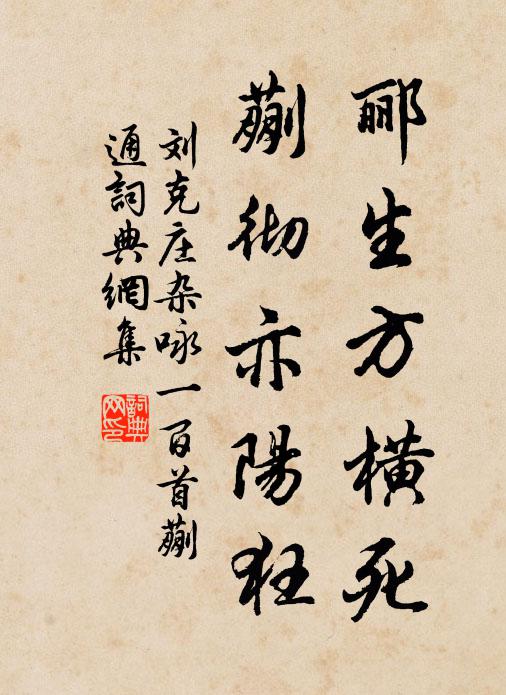 郦生方横死
蒯彻亦陽狂
刘克庄杂咏一百首蒯
通詞典網集
詞典网印